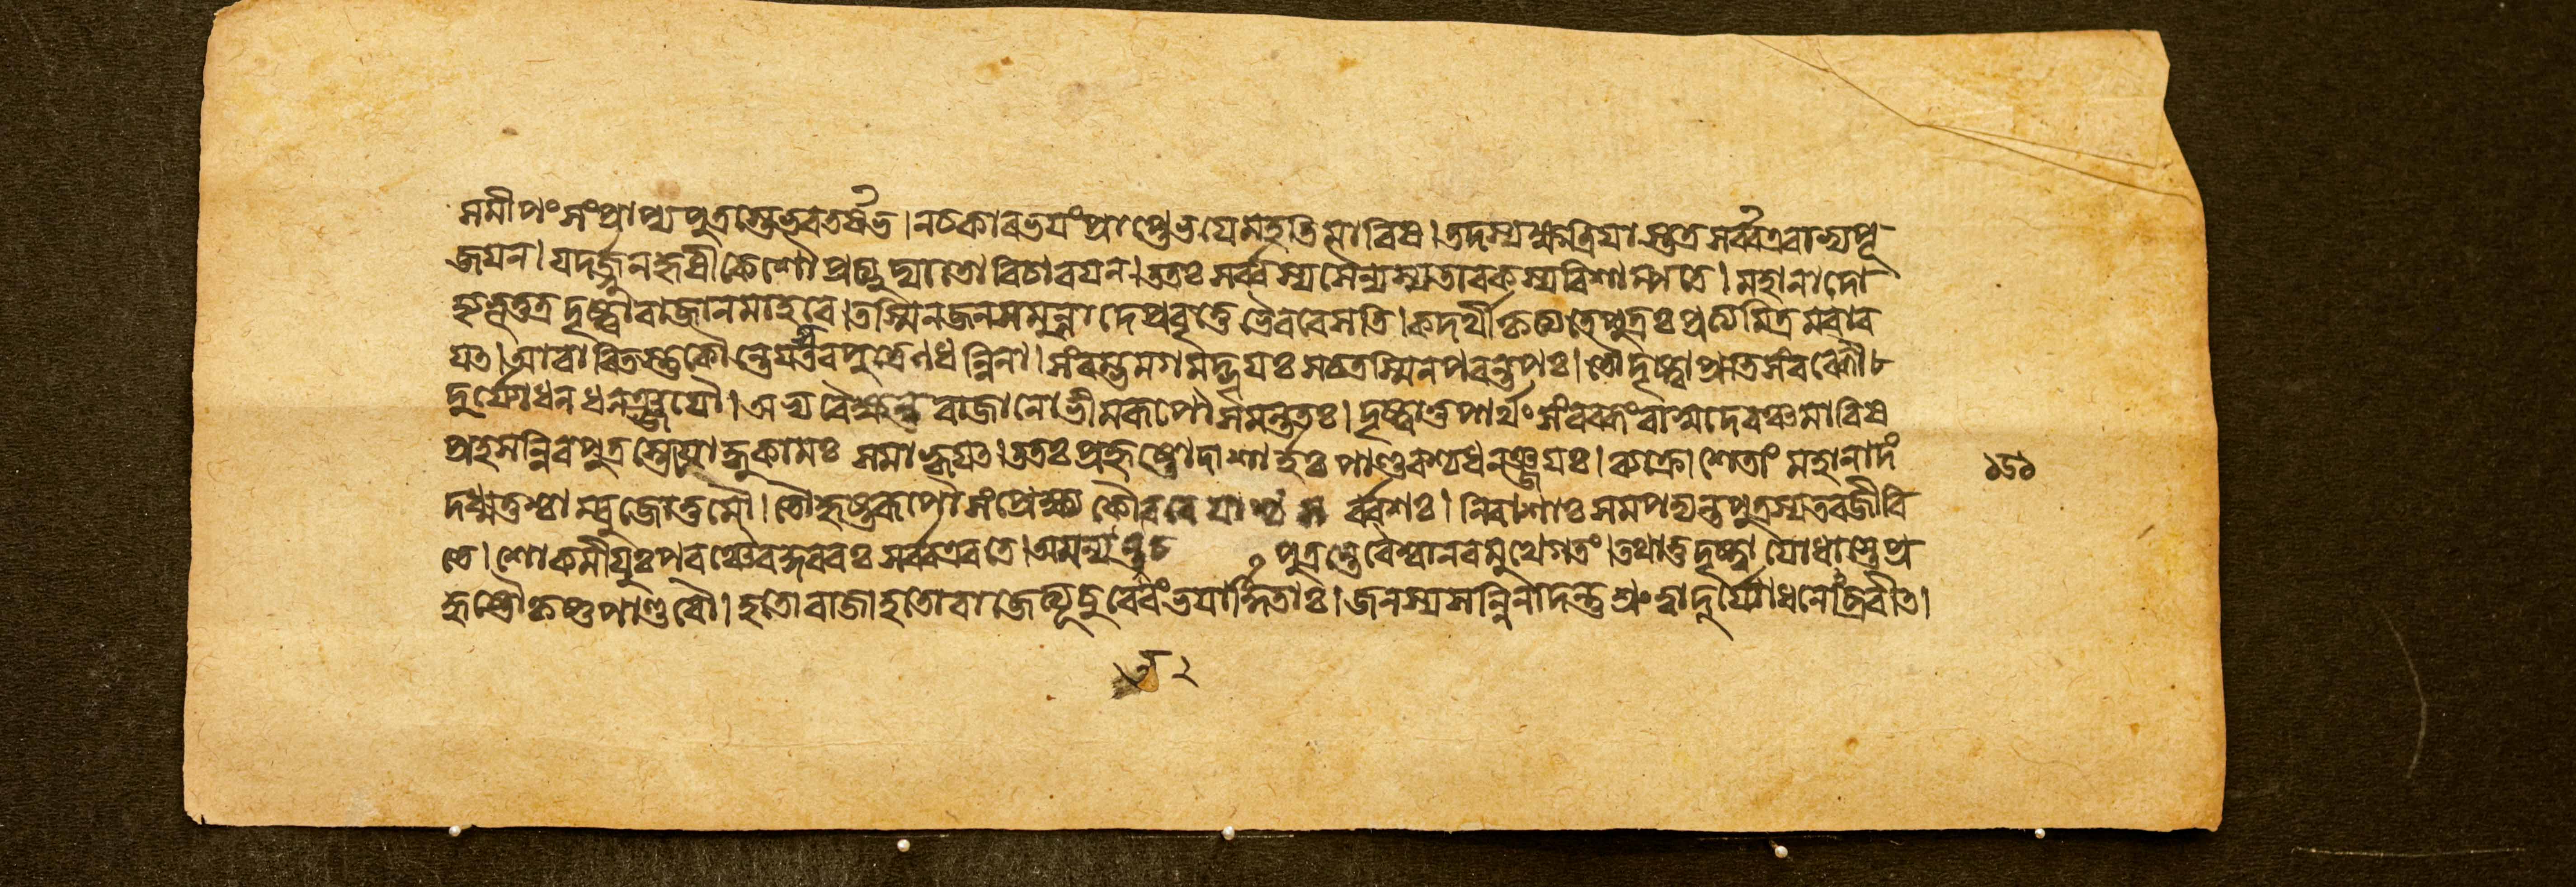 সমীপং সংপ্রাপ্য পুত্রস্তে ভরতর্ষভ । ন চকার ভয়ং প্রাপ্তে ভয়ে মহতি মারিষ । তদস্য ক্ষত্রিয়াস্তত্র সর্ব্ব এবাভ্যপূ
জয়ন । যদর্জ্জুনহৃষীকেশৌ প্রত্যুদ্যাতো বিচারয়ন । ততঃ সর্ব্বস্য সৈন্যস্য তাবকস্য বিশাম্পতে । মহানাদো
হ্যভূত্তত্র দৃষ্ট্বা রাজানমাহবে । তস্মিন জনসমুন্নাদে প্রবৃত্তে ভৈরবে সতি । কদর্থীকৃত্য তে পুত্রঃ প্রত্যমিত্রমবার
যত । আবারিতস্তু কৌন্তেয়স্তব পুত্রেণ ধন্বিনা । সংরম্ভমগমদ্ভূয়ঃ স চ তস্মিন পরন্তপঃ । তৌ দৃষ্ট্বা প্রতিসংরব্ধৌ
দুর্যোধনধনঞ্জয়ৌ । অভ্যবৈক্ষন্ত রাজানো ভীমরূপৌ সমন্ততঃ । দৃষ্ট্বা তু পার্থং সংরব্ধং বাসুদেবঞ্চ মারিষ
প্রহসন্নিব পুত্রস্তে যোদ্ধুকামঃ সমাহ্বয়ত । ততঃ প্রহৃষ্টো দাশার্হঃ পাণ্ডবশ্চ ধনঞ্জয়ঃ । চক্রোশেতাং মহানাদং
দধ্মতুশ্চাম্বুজোত্তমৌ । তৌ হৃষ্টরূপৌ সংপ্রেক্ষ্য কৌরবেয়াশ্চ সর্ব্বশঃ । নিরাশাঃ সমপদ্যন্ত পুত্রস্য তব জীবি
তে । শোকমীয়ুঃ পরঞ্চৈব সর্ব্ব এব তে । অমন্যন্ত চ পুত্রন্তে বৈশ্বানরমুখে । তথা তু দৃষ্ট্বা যোধাস্তে প্র
হৃষ্টৌ কৃষ্ণপাণ্ডবৌ । হতো রাজা হতো রাজেত্যূচুরেবং ভয়ার্দ্দিতাঃ । জনস্য সন্নিনাদন্তু শ্রুত্বা দুর্যোধনো ব্রবীত ।
১৫১